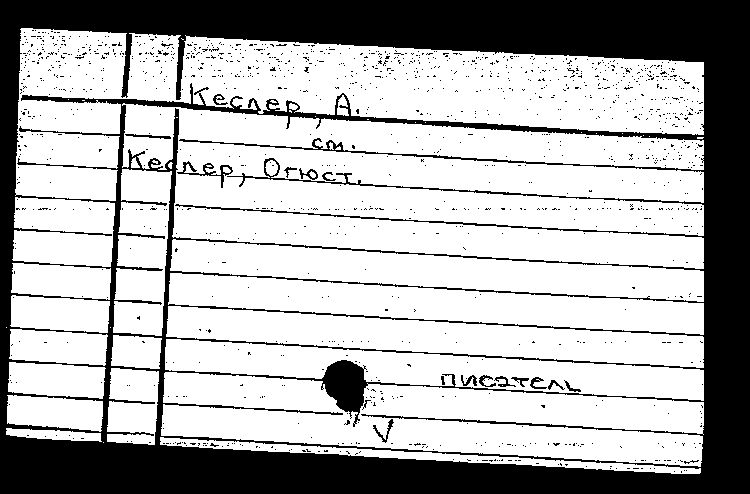 Кеслер, А.
см.
Кеслер, Огюст.
писатель
V